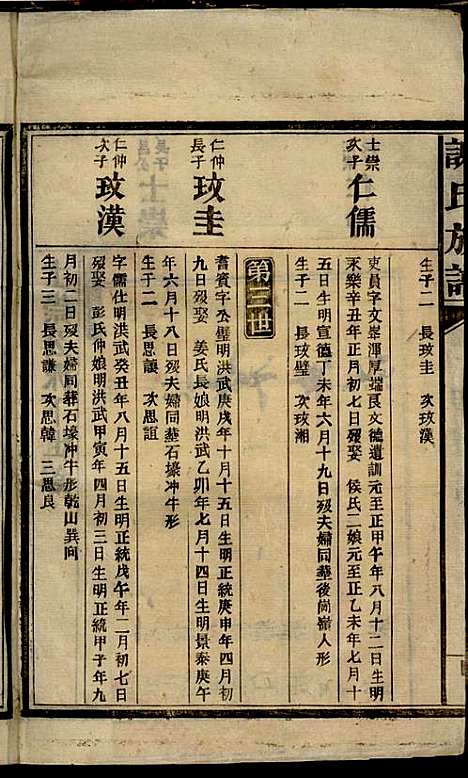 生子二 長玟圭 次玟漢
士崇次子 仁儒
吏員字文峯渾厚端良文德遺訓元至正甲午年八月十二日生明
永樂辛丑年正月初七日歿娶 侯氏二娘元至正乙未年七月十
五日生明宣德丁未年六月十九日歿夫婦同葬後崗嶺人形
生子二 長玟璧 次玟湘
第三世
仁仲長子 玟圭
耆賓字公璧明洪武庚戌年十月十五日生明正統庚申年四月初
九日歿娶 姜氏長娘明洪武乙卯年七月十四日生明景泰庚午
年六月十八日歿夫婦同葬石壕冲牛形
生子二 長思讓 次思誼
仁仲次子 玟漢
字儒仕明洪武癸丑年八月十五日生明正統戊午年二月初七日
歿娶 彭氏仲娘明洪武甲寅年四月初三日生明正統甲子年九
月初二日歿夫婦同葬石壕冲牛形乾山巽向
生子三 長思謙 次思韓 三思良